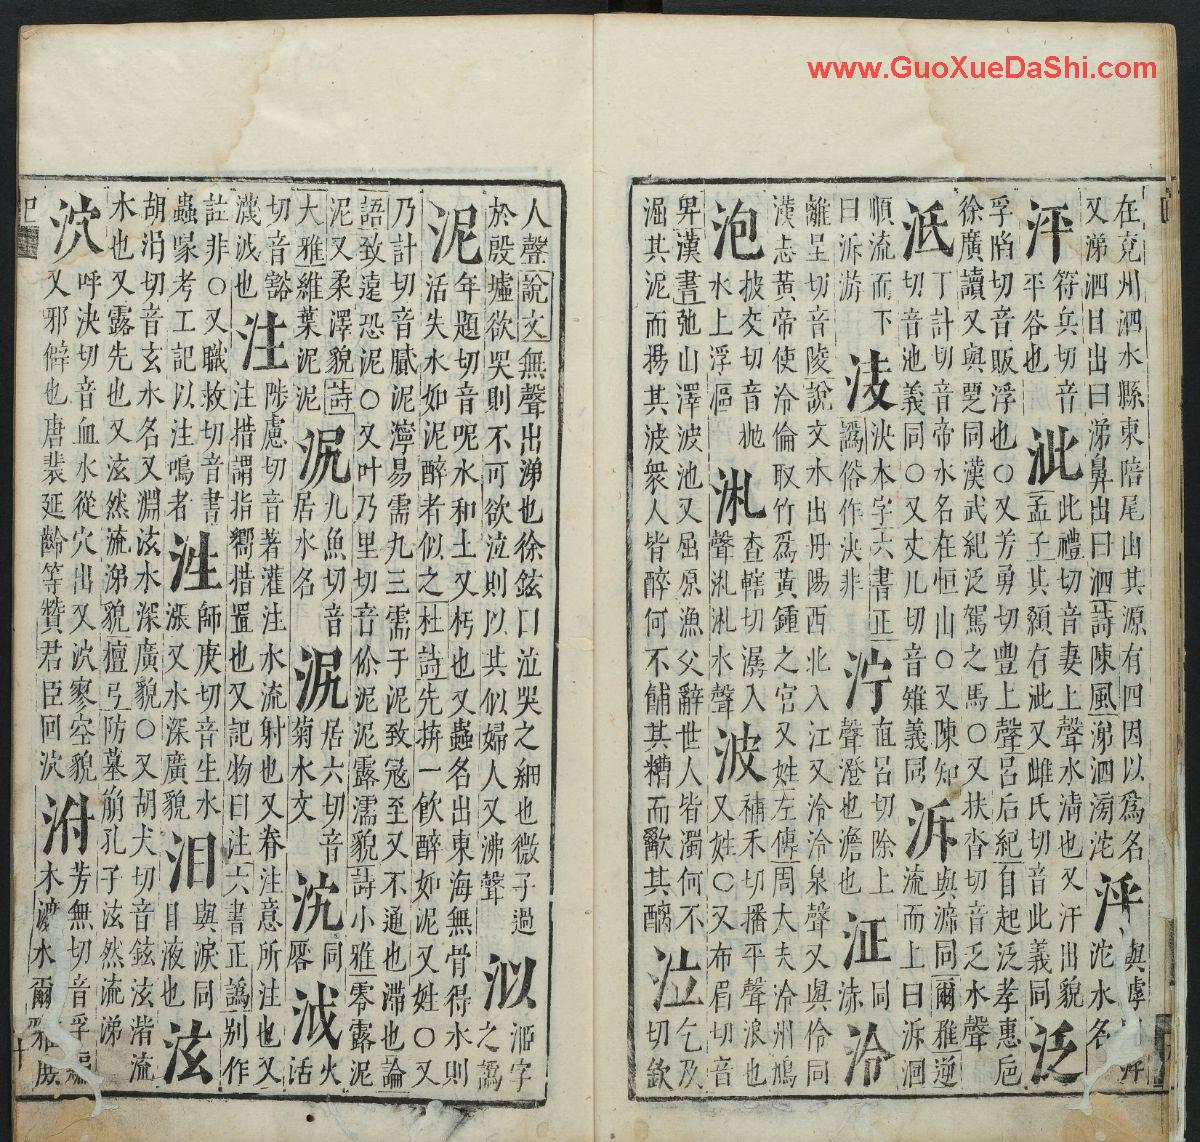 在兖州泗水縣東陪尾山其源有四因以爲名
又涕泗目出曰涕鼻出曰泗詩陳風涕泗滂沱
泘
與虖同泘
沱水名
泙
符兵切音
平谷也
泚
此禮切音妻上聲水淸也又汗出貌
孟子其顙有泚又雌氏切音此義同
泛
孚切音販浮也○又芳勇切豐上聲呂后紀自起泛孝惠巵
徐廣讀又與覂同漢武紀泛駕之馬○又扶沓切音乏水聲
泜
丁計切音帝水名在恒山○又陳知
切音池義同○又丈几切音雉義同
泝
與遡同爾雅逆
流而上曰泝洄
順流而下
曰泝游
決本字六書正
譌俗作决非
泞
直呂切除上
聲澄也澹也
泟
同
赤
泠
離呈切音陵說文水出丹陽西北入江又泠泠泉聲又與伶同
漢志黃帝使泠倫取竹爲黃鍾之官又姓左傳周大夫泠州鳩
泡
披交切音抛
水上浮漚
㳐
查轄切潺入
聲㳐㳐水聲
波
補禾切播平聲浪也
又姓○又布眉切音
卑漢書弛山澤波池又屈原漁父辭世人皆濁何不
淈其泥而揚其波衆人皆醉何不餔其糟而歠其醨
泣
乞及
切欽
人聲說文無聲出涕也徐鉉曰泣哭之細也微子過
於殷墟欲哭則不可欲泣則以其似婦人又沸聲
姬字
之譌
泥
年題切音呢水和土又杇也又蟲名出東海無骨得水則
活失水如泥醉者似之杜詩先拚一飲醉如泥又姓○又
乃計切音膩泥濘易需九三需于泥致寇至又不通也滯也論
語致遠恐泥○又叶乃里切音伱泥泥露濡貌詩小雅零露泥
泥又柔澤貌詩
大雅維葉泥泥
九魚切音
居水名
居六切音
菊水文
同
火
活
泧
切音豁
濊泧也
注
陟慮切音著灌注水流射也又眷注意所注也又
注措謂指嚮措置也又記物曰注六書正譌别作
註非○又職救切音書
蟲冡考工記以注鳴者
泩
師庚切音生水
漲又水深廣貌
泪
與淚同
目液也
泫
胡涓切音玄水名又淵泫水深廣貌○又胡犬切音鉉泫湝流
水也又露先也又泫然流涕貌檀弓防墓崩孔子泫然流涕
泬
呼決切音血水從穴出又泬寥空貌
又邪僻也唐裴延齡等贊君臣回泬
泭
芳無切音孚編
木渡水爾雅庶
十
www.GuoXueDaShi.com